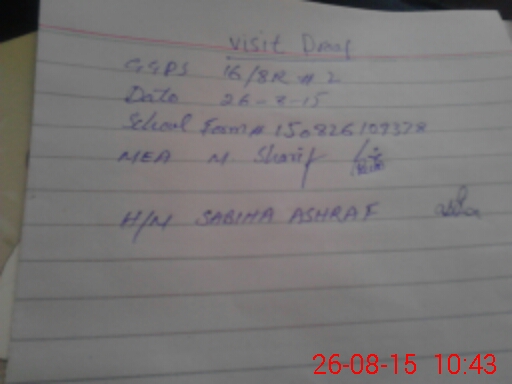 Visit Proof
GGPS 16/8R # 2
Date 26-8-15
School Form # 150826109328
MEA M. Sharif
H/M SABIHA ASHRAF
26-08-15 10:43